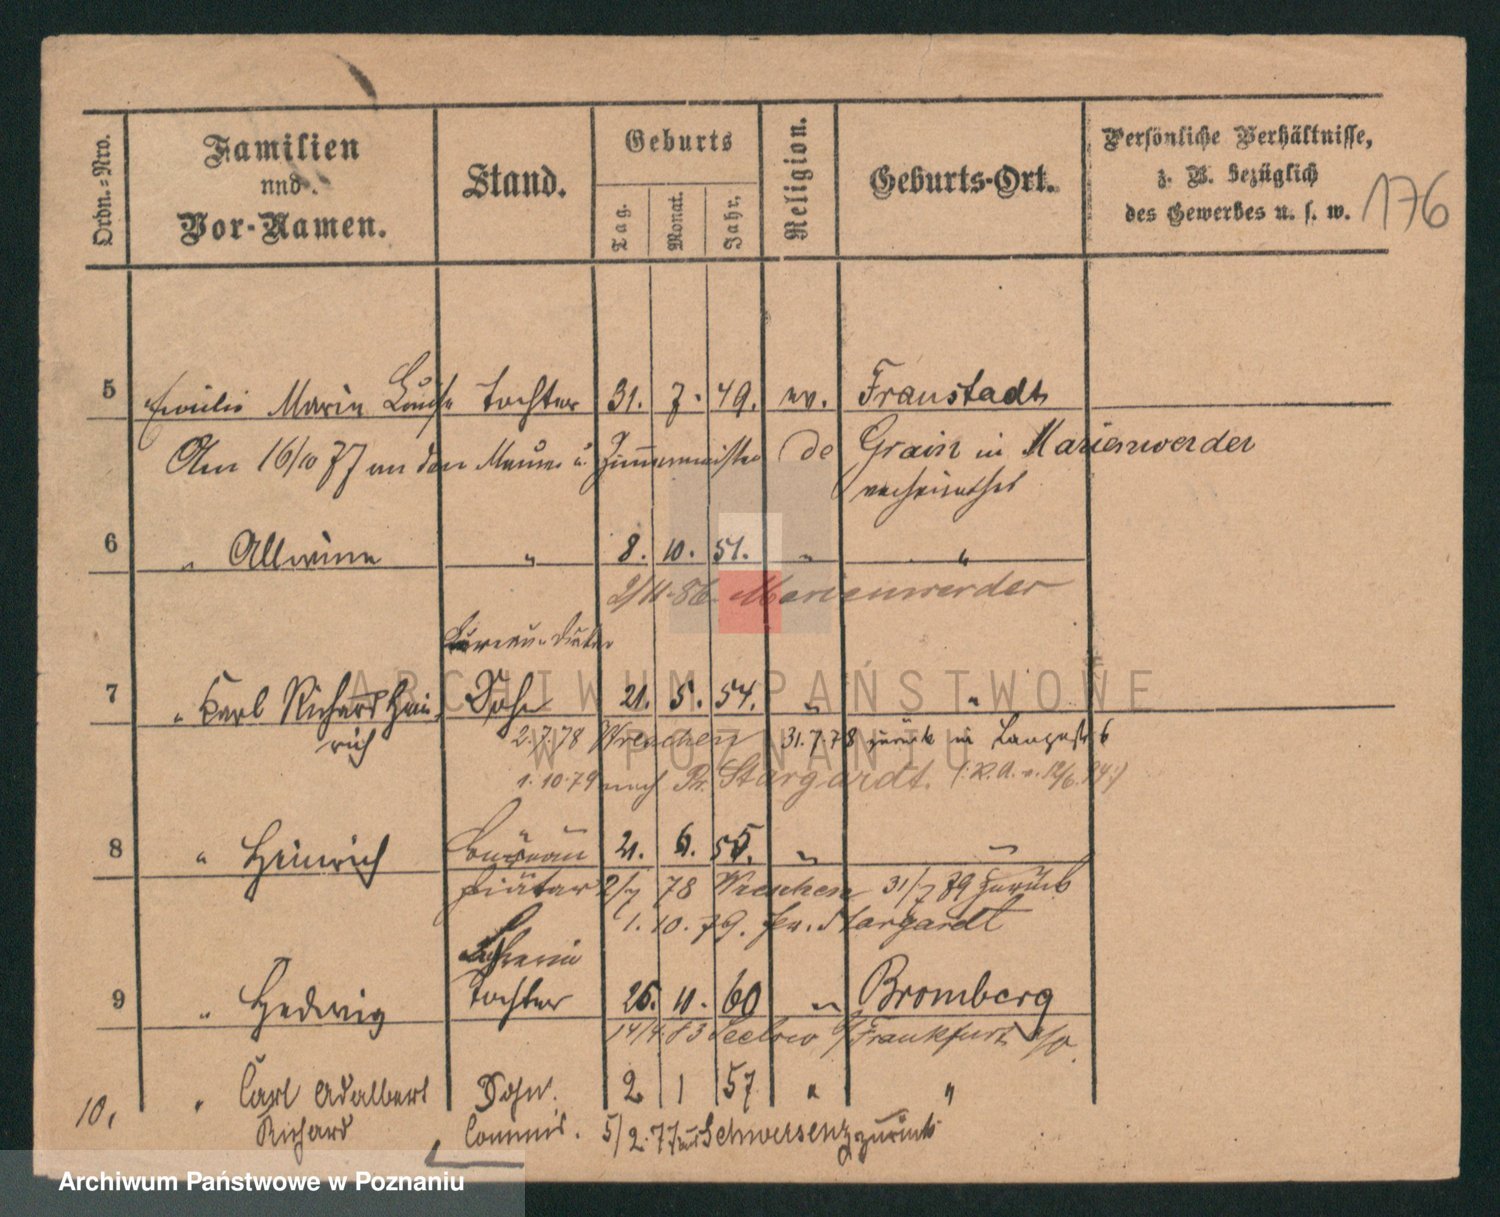 Ordn.-Nro. Familien und Vor-Namen. Stand. Geburts Tag. Monat. Jahr. Religion. Geburts-Ort. Persönliche Verhältnisse, z. B. bezüglich des Gewerbes u. s. w.
176
5 Emilie Marie Louise Tochter 31. 7. 49. ev. Fraustadt
Am 16/10 77 an den Maurer u. Zimmermeister de Grain in Marienwerder
verheirathet
6 " Allwine " 8. 10. 51. " "
2/11. 86. Marienwerder
Bureau Diätar
7 " Carl Richard Hein- Sohn 21. 5. 54. " "
rich 2.7.78 Wreschen 31.7.78 zurück in Langestr 6
1.10.79 nach Pr. Stargardt.
8 " Heinrich Bureau 21. 6. 55. " "
Diätar 2/7 78 Wreschen 31/7 79 zurück
1.10.79. Pr. Stargardt
Lehrerin
9 " Hedwig Tochter 26. 11. 60 " Bromberg
14/4. 83 Seelow b/ Frankfurt a/O.
10. " Carl Adalbert Sohn. 2 1 57 " "
Richard Commis. 5/2.77 aus Schwersenz zurück
ARCHIWUM PAŃSTWOWE
W POZNANIU
Archiwum Państwowe w Poznaniu